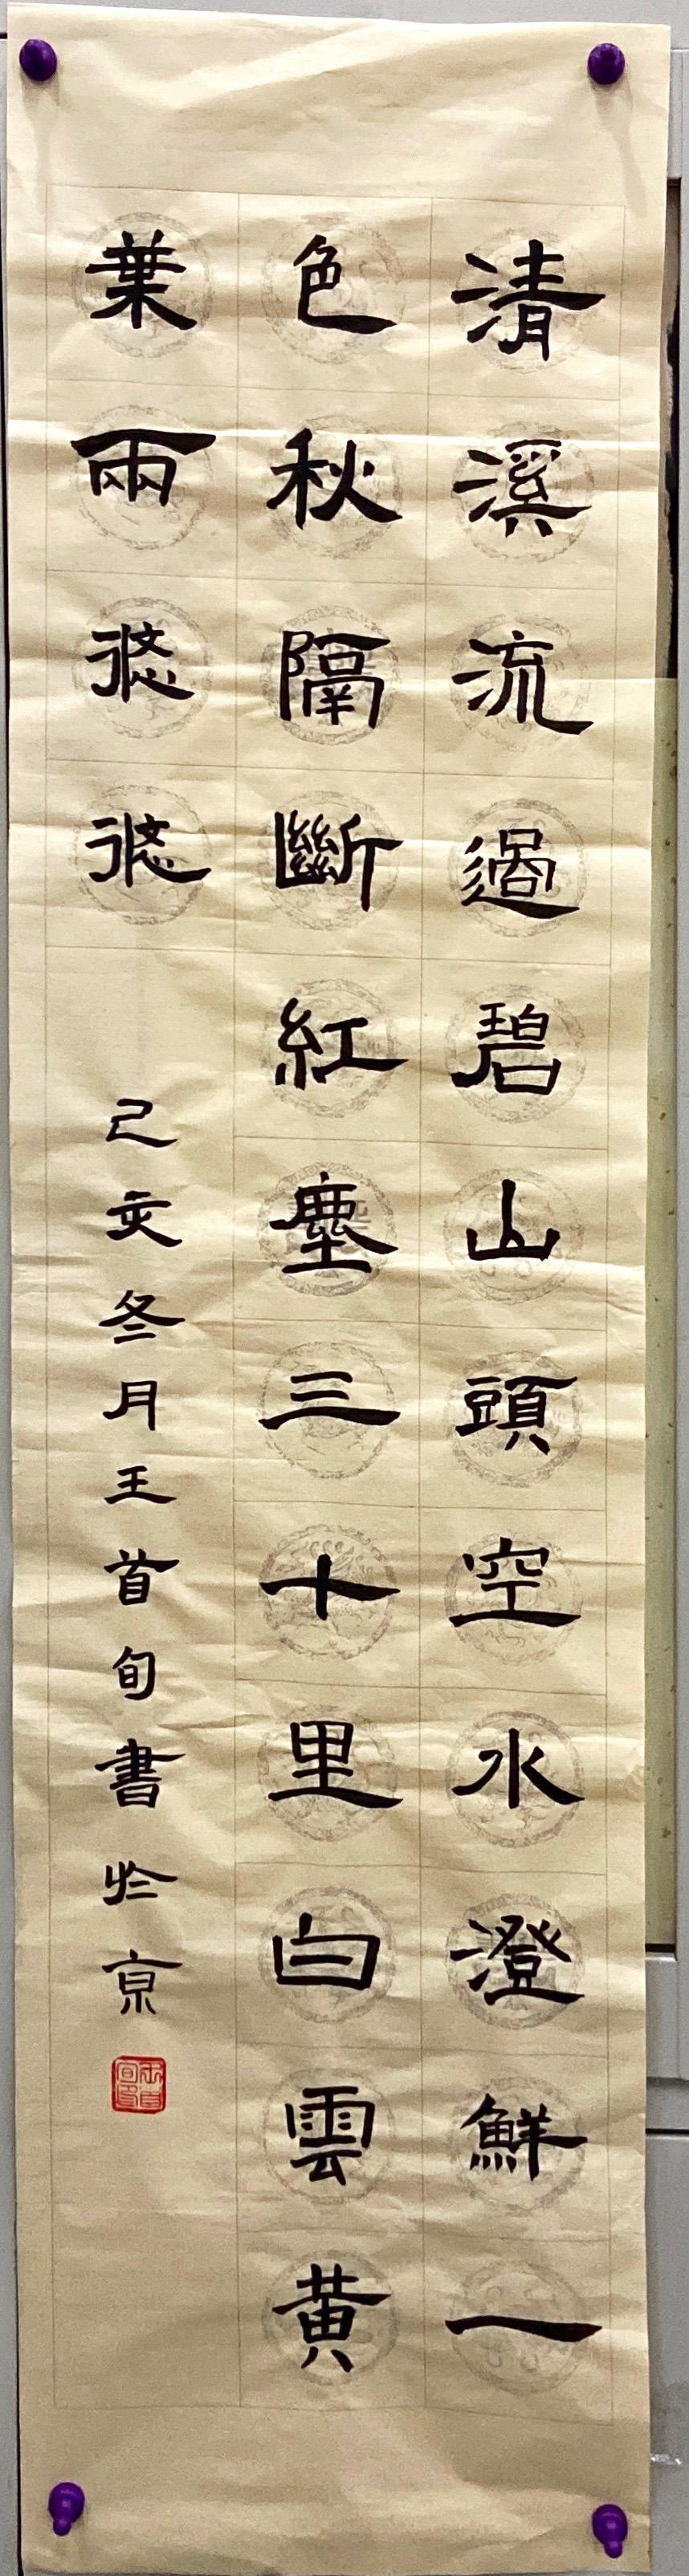 清溪流過碧山頭空水澄鮮一
色秋隔斷紅塵三十里白雲黄
葉兩悠悠
己亥冬月王首旬書於京